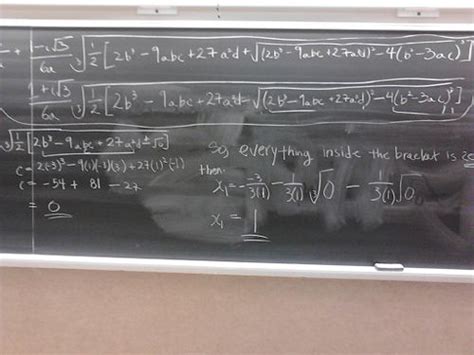 + 1-i√3/6a ∛(1/2[2b³-9abc+27a²d+√((2b³-9abc+27a²d)²-4(b²-3ac)³)])
1+i√3/6a ∛(1/2[2b³-9abc+27a²d-√((2b³-9abc+27a²d)²-4(b²-3ac)³)])
∛(1/2[2b³-9abc+27a²d±√0])
C= 2(-3)³-9(1)(-3)(3)+27(1)²(-1)
C= -54+81-27
= 0
So, everything inside the bracket is
then:
x₁= -(-3)/3(1) - 1/3(1) ∛0 - 1/3(1) ∛0
x₁ = 1